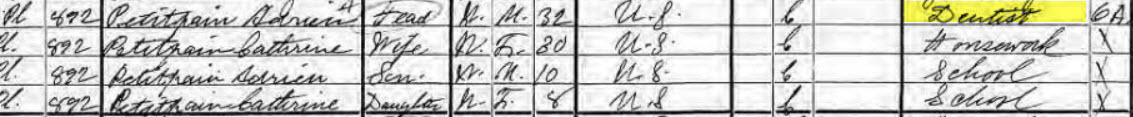 Pl 892 Petitpain Adrien A Head W. M. 32 U.S. C Dentist 6A
Pl. 892 Petitpain Catherine Wife W. F. 30 U.S. C Housework X
Pl. 892 Petitpain Adrien Son. W. M. 10 U.S. C School X
Pl. 892 Petitpain Catherine Daughter W. F. 8 U.S C School X